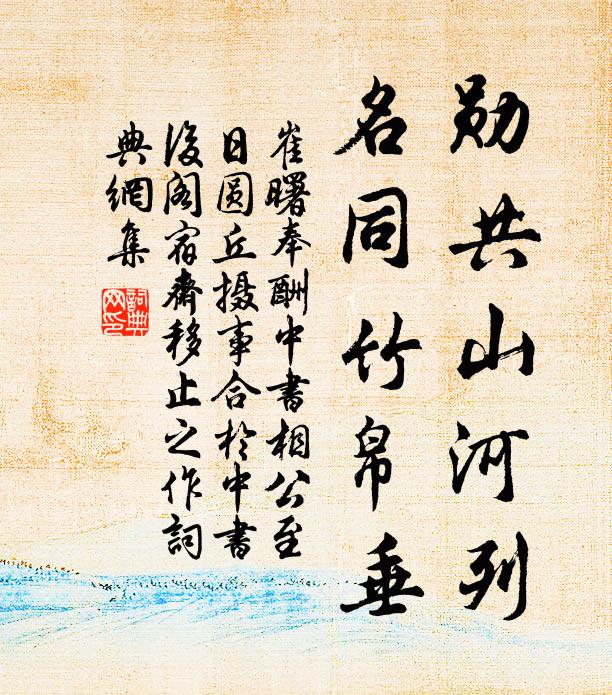 勋共山河列
名同竹帛垂
崔曙奉酬中书相公至
日圆丘摄事合于中书
后阁宿斋移止之作词
典网集
詞典
网印